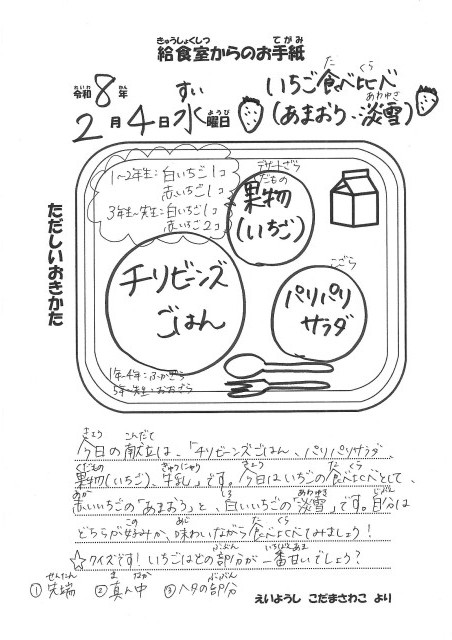 きゅうしょくしつ てがみ
給食室からのお手紙
れいわ ねん すい ようび
令和8年
2月4日水曜日
た くら
いちご食べ比べ
あわゆき
(あまおう、淡雪)
1~2年生:白いちご1コ
赤いちご1コ
3年生~先生:白いちご1コ
赤いちご2コ
デザートざら
くだもの
果物
(いちご)
ただしいおきかた
チリビーンズ
ごはん
こざら
パリパリ
サラダ
1年~4年:ふかざら
5年~先生:おおざら
きょう こんだて
今日の献立は、「チリビーンズごはん、パリパリサラダ、
くだもの ぎゅうにゅう きょう た くら
果物(いちご)、牛乳」です。今日はいちごの食べ比べとして、
あか しろ あわゆき じぶん
赤いいちごの「あまおう」と、白いいちごの「淡雪」です。自分は
この あじ た くら
どちらが好みか、味わいながら食べ比べてみましょう!
ぶぶん いちばんあま
☆クイズです!いちごはどの部分が一番甘いでしょう?
せんたん ま なか ぶぶん
①先端 ②真ん中 ③ヘタの部分
えいようし こだまさわこ より